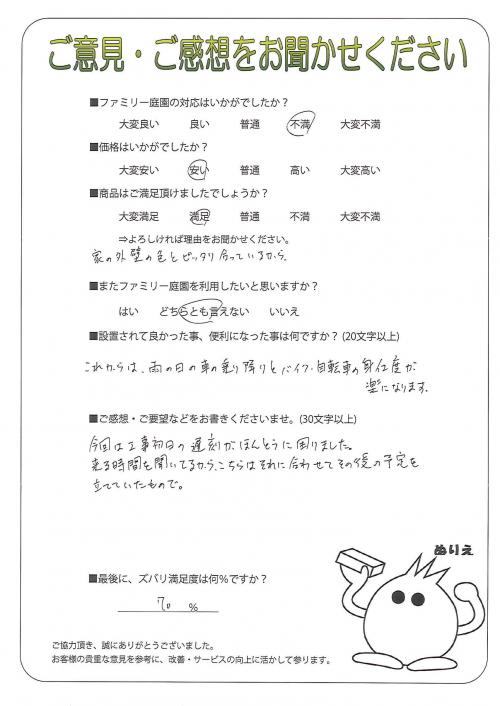 ご意見・ご感想をお聞かせください
■ファミリー庭園の対応はいかがでしたか？
大変良い 良い 普通 不満 大変不満
■価格はいかがでしたか？
大変安い 安い 普通 高い 大変高い
■商品はご満足頂けましたでしょうか？
大変満足 満足 普通 不満 大変不満
⇒よろしければ理由をお聞かせください。
家の外壁の色とピッタリ合っているから。
■またファミリー庭園を利用したいと思いますか？
はい どちらとも言えない いいえ
■設置されて良かった事、便利になった事は何ですか？(20文字以上)
これからは、雨の日の車の乗り降りとバイク・自転車の身仕度が
楽になります。
■ご感想・ご要望などをお書きくださいませ。(30文字以上)
今回は工事初日の遅刻がほんとうに困りました。
来る時間を聞いてるから、こちらはそれに合わせてその後の予定を
立てていたもので。
ぬりえ
■最後に、ズバリ満足度は何％ですか？
70 ％
ご協力頂き、誠にありがとうございました。
お客様の貴重な意見を参考に、改善・サービスの向上に活かして参ります。